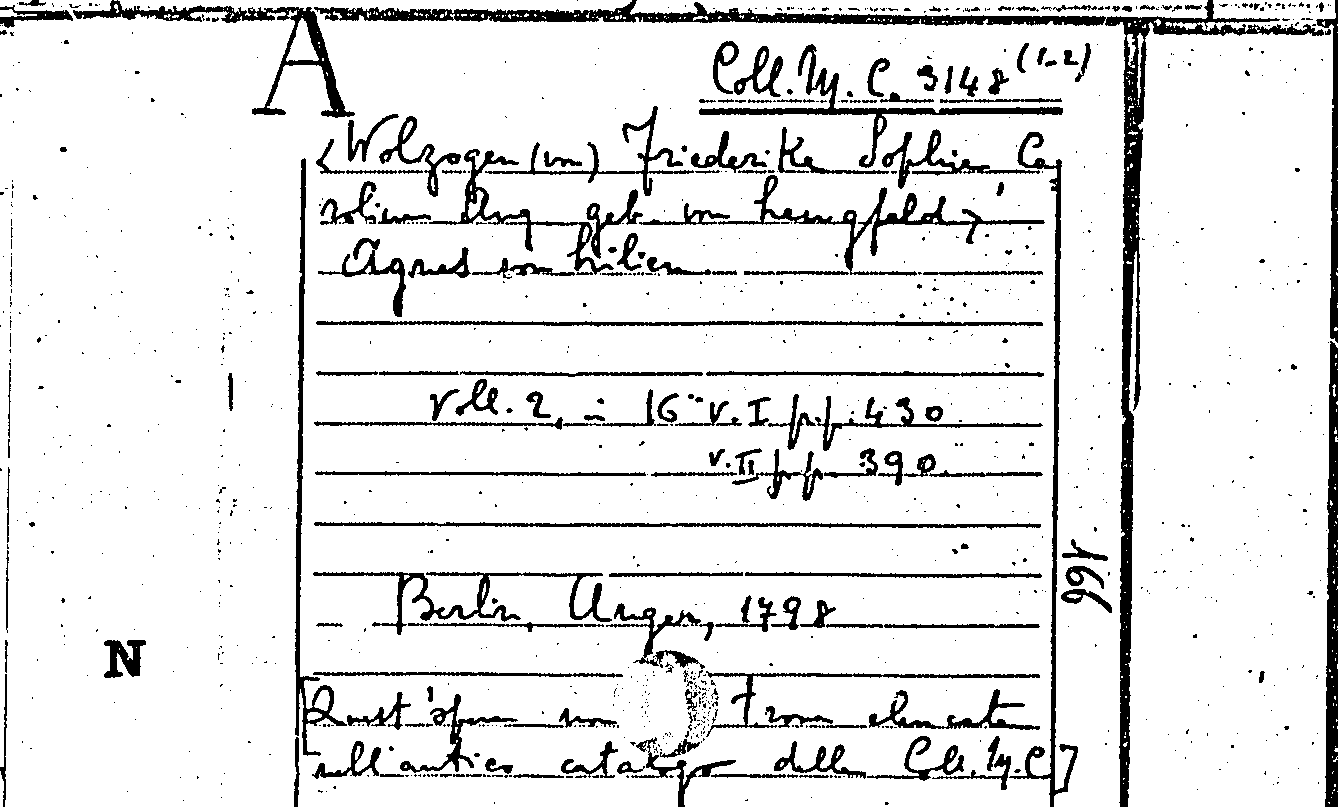 A
Coll. M. C. 3148 (1-2)
<Wolzogen (von) Friederike Sophie Ca
roline Aug geb. von Lengefeld>
Agnes von Lilien
Voll. 2, in 16° v. I pp. 430
v. II pp. 390
Berlin, Unger, 1798
166
N
[Quest'opera non trovasi elencata
nell'antico catalogo della Coll. M. C.]